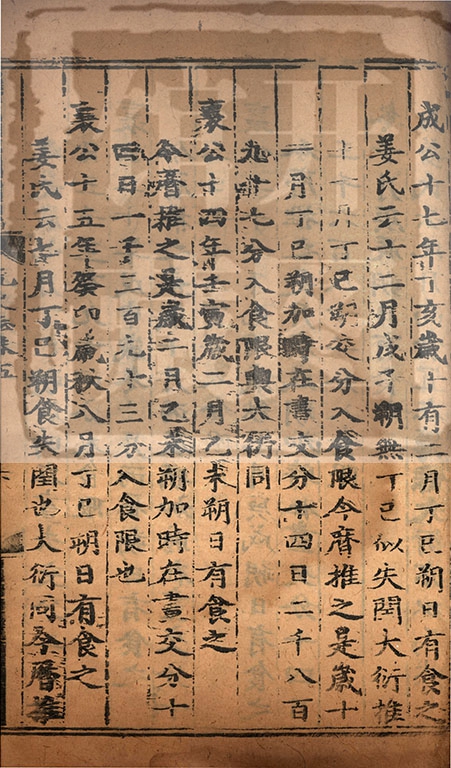 成公十七年丁亥歲十有二月丁巳朔日有食之
姜氏云十二月戊子朔無丁巳似失閏大衍推
十一月丁巳朔交分入食限今曆推之是歲十
一月丁巳朔加時在晝交分十四日二千八百
九十七分入食限與大衍同
襄公十四年壬寅歲二月乙未朔日有食之
今曆推之是歲二月乙未朔加時在晝交分十
四日一千三百九十三分入食限也
襄公十五年癸卯歲秋八月丁巳朔日有食之
姜氏云七月丁巳朔食失閏也大衍同今曆推